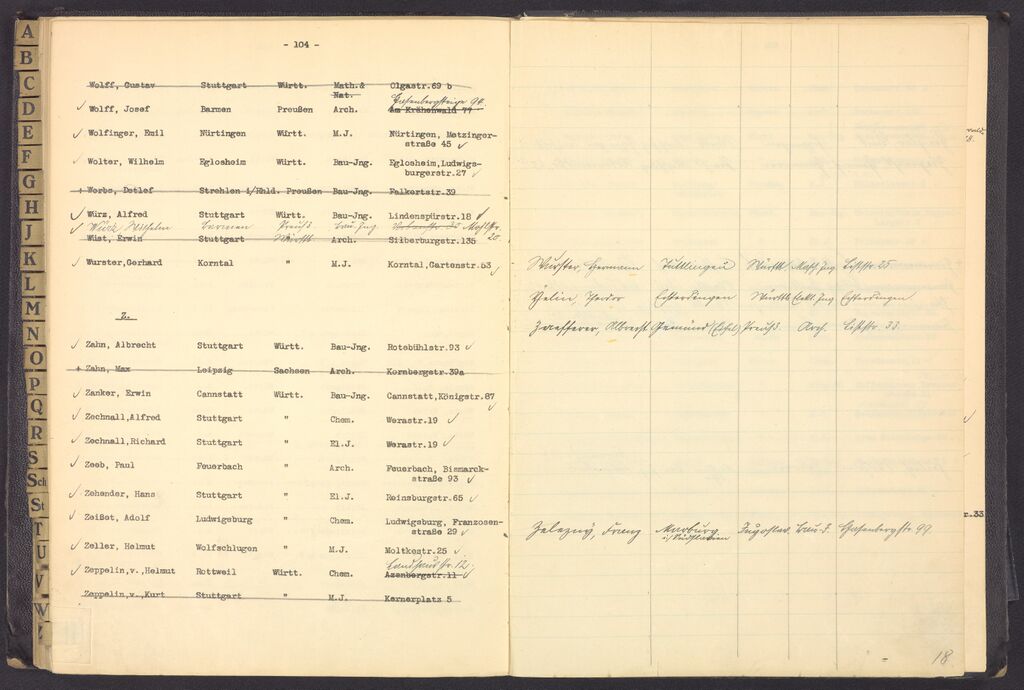 A
B
C
D
E
F
G
H
J
K
L
M
N
O
P
Q
R
S
Sch
St
T
U
V
W
Z
- 104 -
Wolff, Gustav Stuttgart Württ. Math.& Olgastr.69 b
Nat.
Hasenbergsteige 90.
✓ Wolff, Josef Barmen Preußen Arch. Am Krähenwald 77
✓ Wolfinger, Emil Nürtingen Württ. M.J. Nürtingen, Metzinger-
straße 45 ✓
✓ Wolter, Wilhelm Eglosheim Württ. Bau-Jng. Eglosheim,Ludwigs-
burgerstr.27 ✓
+ Worbs, Detlef Strehlen i/Rhld. Preußen Bau-Jng. Falkertstr.39
✓ Würz, Alfred Stuttgart Württ. Bau-Jng. Lindenspürstr.18 ✓
✓ Wilhelm Barmen Preuß. Bau.Jng.
Wüst, Erwin Stuttgart Württ. Arch. Silberburgstr.135 20.
✓ Wurster,Gerhard Korntal " M.J. Korntal,Gartenstr.53 ✓
Z.
✓ Zahn, Albrecht Stuttgart Württ. Bau-Jng. Rotebühlstr.93 ✓
+ Zahn, Max Leipzig Sachsen Arch. Kornbergstr.39a
✓ Zanker, Erwin Cannstatt Württ. Bau-Jng. Cannstatt,Königstr.87
✓
✓ Zechnall,Alfred Stuttgart " Chem. Werastr.19 ✓
✓ Zechnall,Richard Stuttgart " El.J. Werastr.19 ✓
✓ Zeeb, Paul Feuerbach " Arch. Feuerbach, Bismarck-
straße 93 ✓
✓ Zehender, Hans Stuttgart " El.J. Reinsburgstr.65 ✓
✓ Zeißet, Adolf Ludwigsburg " Chem. Ludwigsburg, Franzosen-
straße 29 ✓
✓ Zeller, Helmut Wolfschlugen " M.J. Moltkestr.25 ✓
Landhausstr. 12.
✓ Zeppelin,v.,Helmut Rottweil Württ. Chem. Azenbergstr.11 ✓
Zeppelin,v.,Kurt Stuttgart " M.J. Kernerplatz 5
Wurster, Hermann Tuttlingen Württ. Masch. Jng. Liststr. 25
Theodor Echterdingen Württ. Elekt. Jng Echterdingen
Zaefferer, Albrecht Gemünd (Eifel) Preuß. Arch. Liststr. 33.
Železný, Franz Marburg Jugoslav. Bau-J. Hasenbergstr. 99.
i/Südslavien
8.
✓
r.33.
18